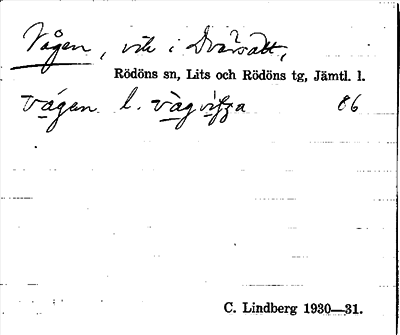 Vågen, vik i Dvärsätt,
Rödöns sn, Lits och Rödöns tg, Jämtl. l.
vágen l. vàgvíka 86
C. Lindberg 1930—31.